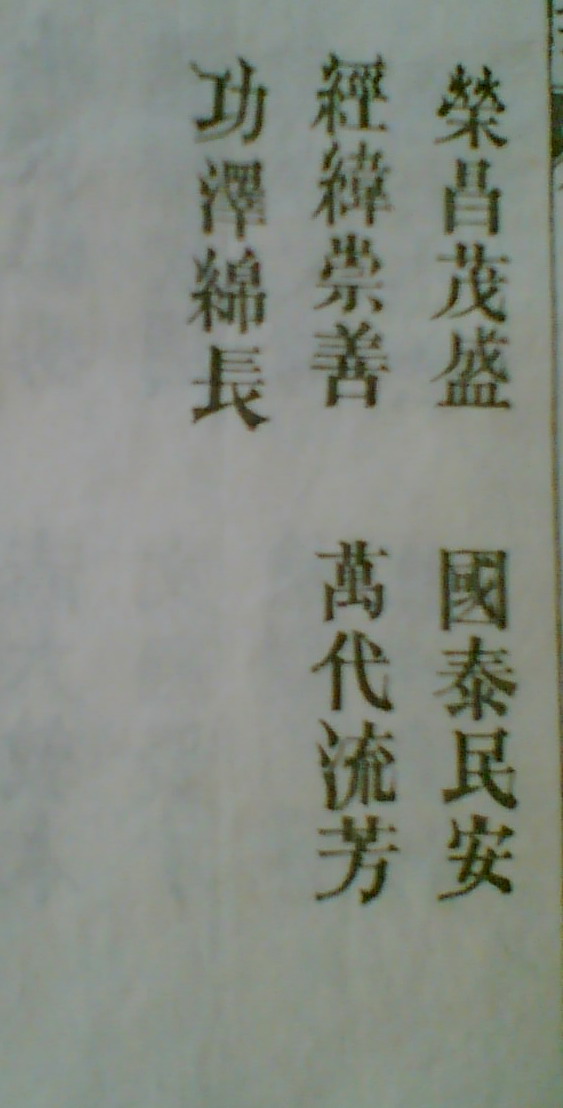 榮昌茂盛　國泰民安
經緯崇善　萬代流芳
功澤綿長